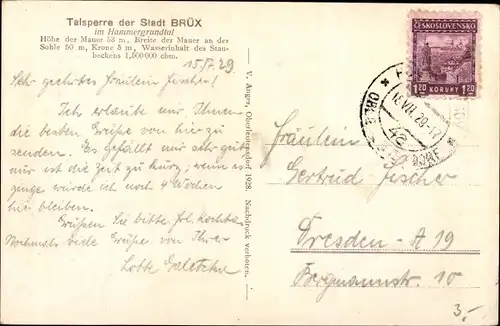 Talsperre der Stadt BRÜX
im Hammergrundtal
Höhe der Mauer 53 m, Breite der Mauer an der
Sohle 50 m, Krone 5 m, Wasserinhalt des Stau-
beckens 1,500000 cbm.
15/7.29
Sehr geehrtes Fräulein Fischer!
Ich erlaube mir Ihnen
die besten Grüße von hier zu
senden. Es gefällt mir sehr gut
nur ist die Zeit zu kurz, wenn es
ginge würde ich noch 4 Wochen
hier bleiben.
Grüßen Sie bitte Frl.
Nochmals viele Grüße von Ihrer
Lotte
V. Anger, Oberleutensdorf 1928. Nachdruck verboten.
ČESKOSLOVENSKO
1.20 KORUNY 1.20
16.VII.29
Fräulein
Gertrud Fischer
Dresden-A 19
Bergmannstr. 10
3.-